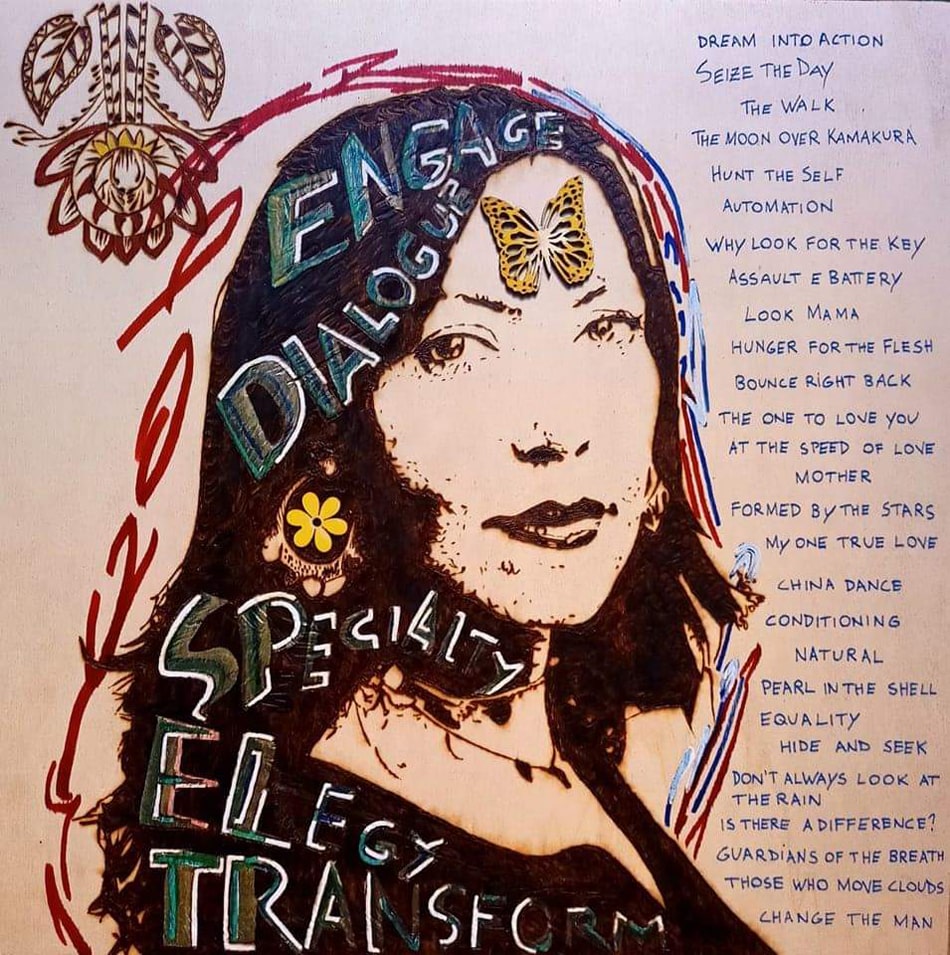 ENGAGE
DIALOGUE
SPECIALTY
ELEGY
TRANSFORM
DREAM INTO ACTION
SEIZE THE DAY
THE WALK
THE MOON OVER KAMAKURA
HUNT THE SELF
AUTOMATION
WHY LOOK FOR THE KEY
ASSAULT E BATTERY
LOOK MAMA
HUNGER FOR THE FLESH
BOUNCE RIGHT BACK
THE ONE TO LOVE YOU
AT THE SPEED OF LOVE
MOTHER
FORMED BY THE STARS
MY ONE TRUE LOVE
CHINA DANCE
CONDITIONING
NATURAL
PEARL IN THE SHELL
EQUALITY
HIDE AND SEEK
DON'T ALWAYS LOOK AT
THE RAIN
IS THERE A DIFFERENCE?
GUARDIANS OF THE BREATH
THOSE WHO MOVE CLOUDS
CHANGE THE MAN